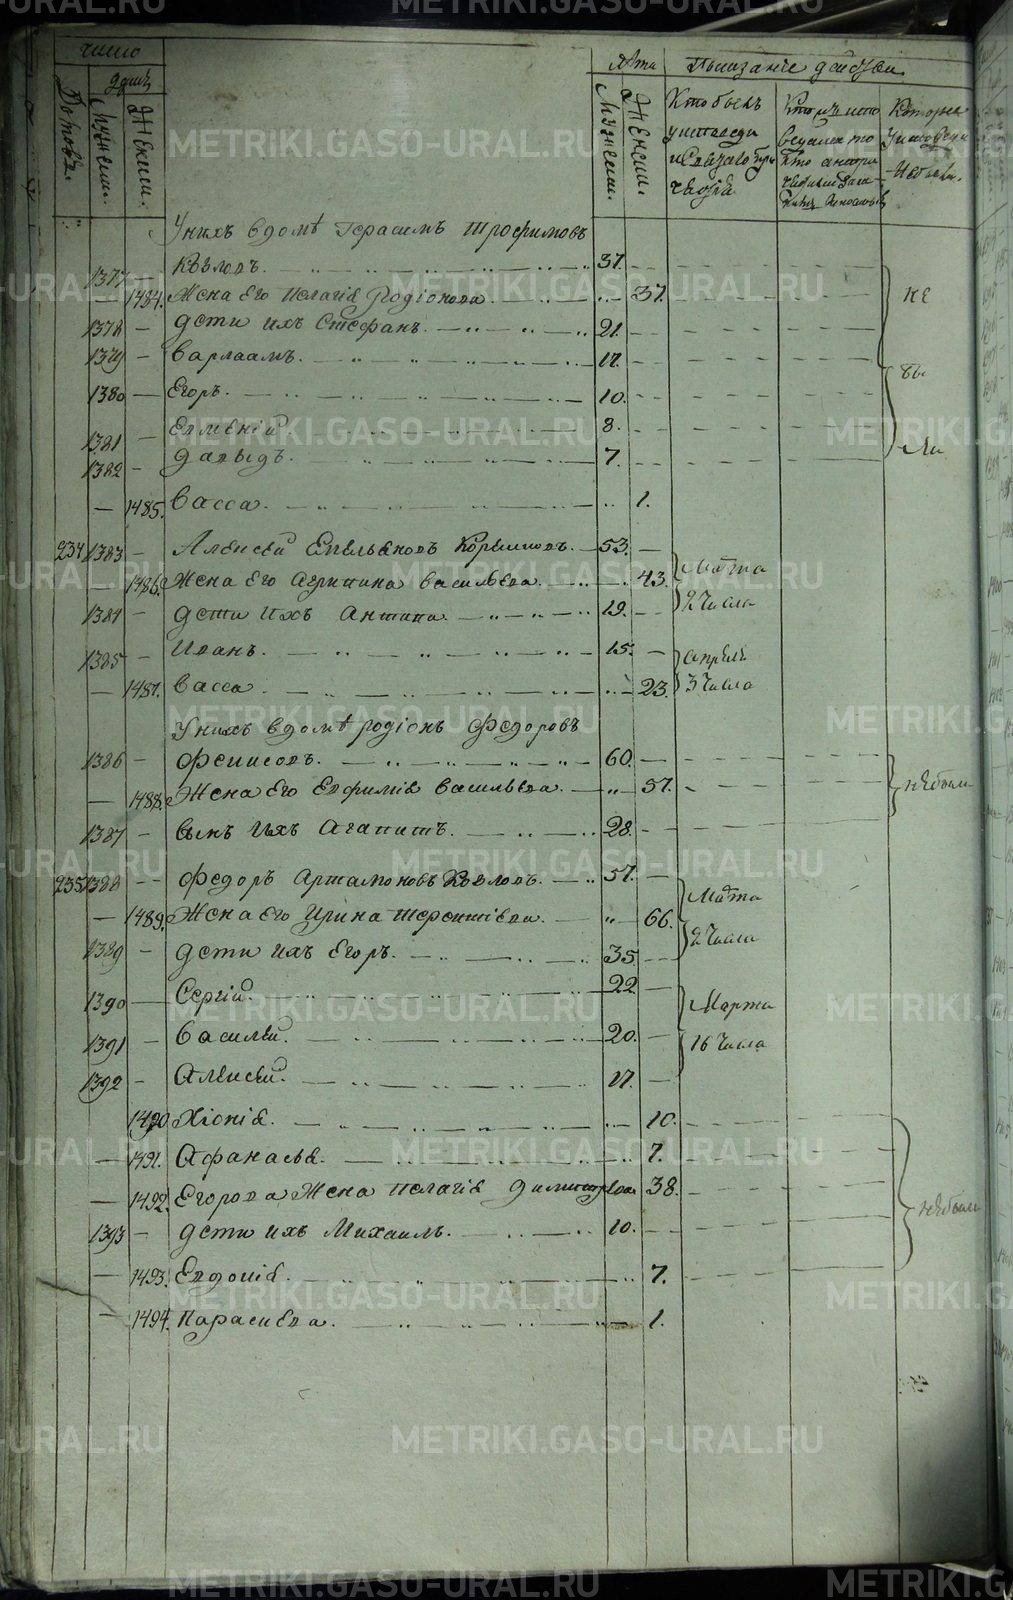 число
лѣта Показанiе действа
Домовъ.
душъ
Мужеск.
Женск.
Мужеск.
Женск.
Кто былъ у исповеди и святаго причастiя
Которые у исповеди не были.
У нихъ в домѣ Герасимъ Трофимовъ
1377 Козловъ. 37.
1484. Жена его Пелагiя Родiонова 37.
1378 дети ихъ Стефанъ. 21.
1379 Варлаамъ. 17.
1380 Егоръ. 10.
1381 8.
1382 Давыдъ. 7.
1485. Васса. 1.
не
бы
ли
234 1383 Алексей Емельяновъ 53.
1486. Жена его Агрипина Васильева. 43.
1384 дети ихъ Антипа. 19.
1385 Иванъ. 15.
1487. Васса. 23.
Марта
2 числа
Апреля
3 числа
У нихъ в домѣ Родiонъ Федоровъ
1386 60.
1488. Жена его Евфимiя Васильева. 57.
1387 сынъ ихъ Агапитъ. 28.
не были
235 1388 Федоръ Артамоновъ Козловъ. 57.
1489. Жена его Ирина Терентiева. 66.
1389 дети ихъ Егоръ. 35.
1390 Сергiй. 22
1391 Василей. 20.
1392 Алексей. 17.
Марта
2 числа
Марта
16 числа
1490. Хiонiя. 10.
1491. Афанасья. 7.
1492. Егорова жена Пелагiя 38.
1393 дети ихъ Михаилъ. 10.
1493. Евдокiя. 7.
1494. Парасковa. 1.
не были
METRIKI.GASO-URAL.RU